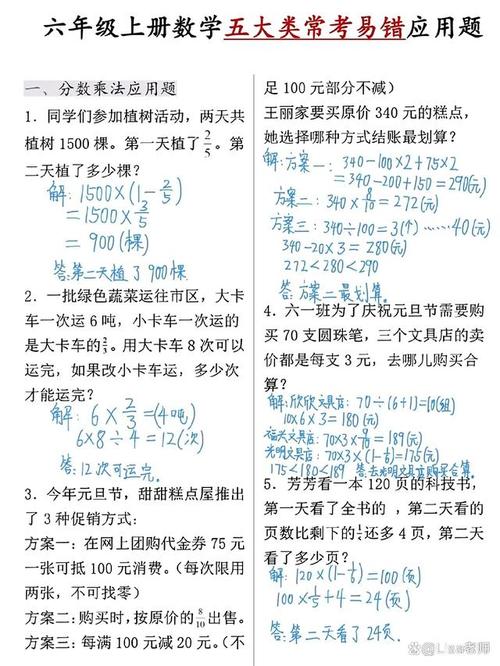 六年级上册数学五大类常考易错应用题
一、分数乘法应用题
1. 同学们参加植树活动，两天共
植树 1500 棵。第一天植了 2/5。第
二天植了多少棵？
解：1500×(1-2/5)
=1500×3/5
=900(棵)
答：第二天植了900棵
2. 一批绿色蔬菜运往市区，大卡
车一次运 6 吨，小卡车一次运的
是大卡车的 2/3。用大卡车 8 次可以
运完，如果改小卡车运，多少次
才能运完？
解：6×2/3=(4吨)
6×8÷4=12(次)
答：12次可运完。
3. 今年元旦节，甜甜糕点屋推出
了 3 种促销方式：
方案一：在网上团购代金券 75 元
一张可抵 100 元消费。（每次限用
两张，不可找零）
方案二：购买时，按原价的 8/10 出售。
方案三：每满 100 元减 20 元。（不
足 100 元部分不减）
王丽家要买原价 340 元的糕点，
她选择哪种方式结账最划算？
解：方案一：340-100×2+75×2
=340-200+150=290(元)
方案二：340×8/10=272(元)
方案三：340÷100=3(个)……40(元)
340-20×3=280(元)
272<280<290
答：方案二最划算。
4. 六一班为了庆祝元旦节需要购
买 70 支圆珠笔，三个文具店的卖
价都是每支 3 元，去哪儿购买合
算？
解：欣欣文具店：70÷(6+1)=10(组)
10×6×3=180(元)
福兴文具店：70×3×9/10=189(元)
光明文具店：70×3×(1-1/6)=175(元)
175<180<189 答：去光明文具店购买合算。
5. 芳芳看一本 120 页的科技书，
第一天看了全书的 ，第二天看的
页数比剩下的 1/5 还多 4 页，第二天
看了多少页？
解：120×(1-1/6)=100(页)
100×1/5+4=24(页)
答：第二天看了24页。